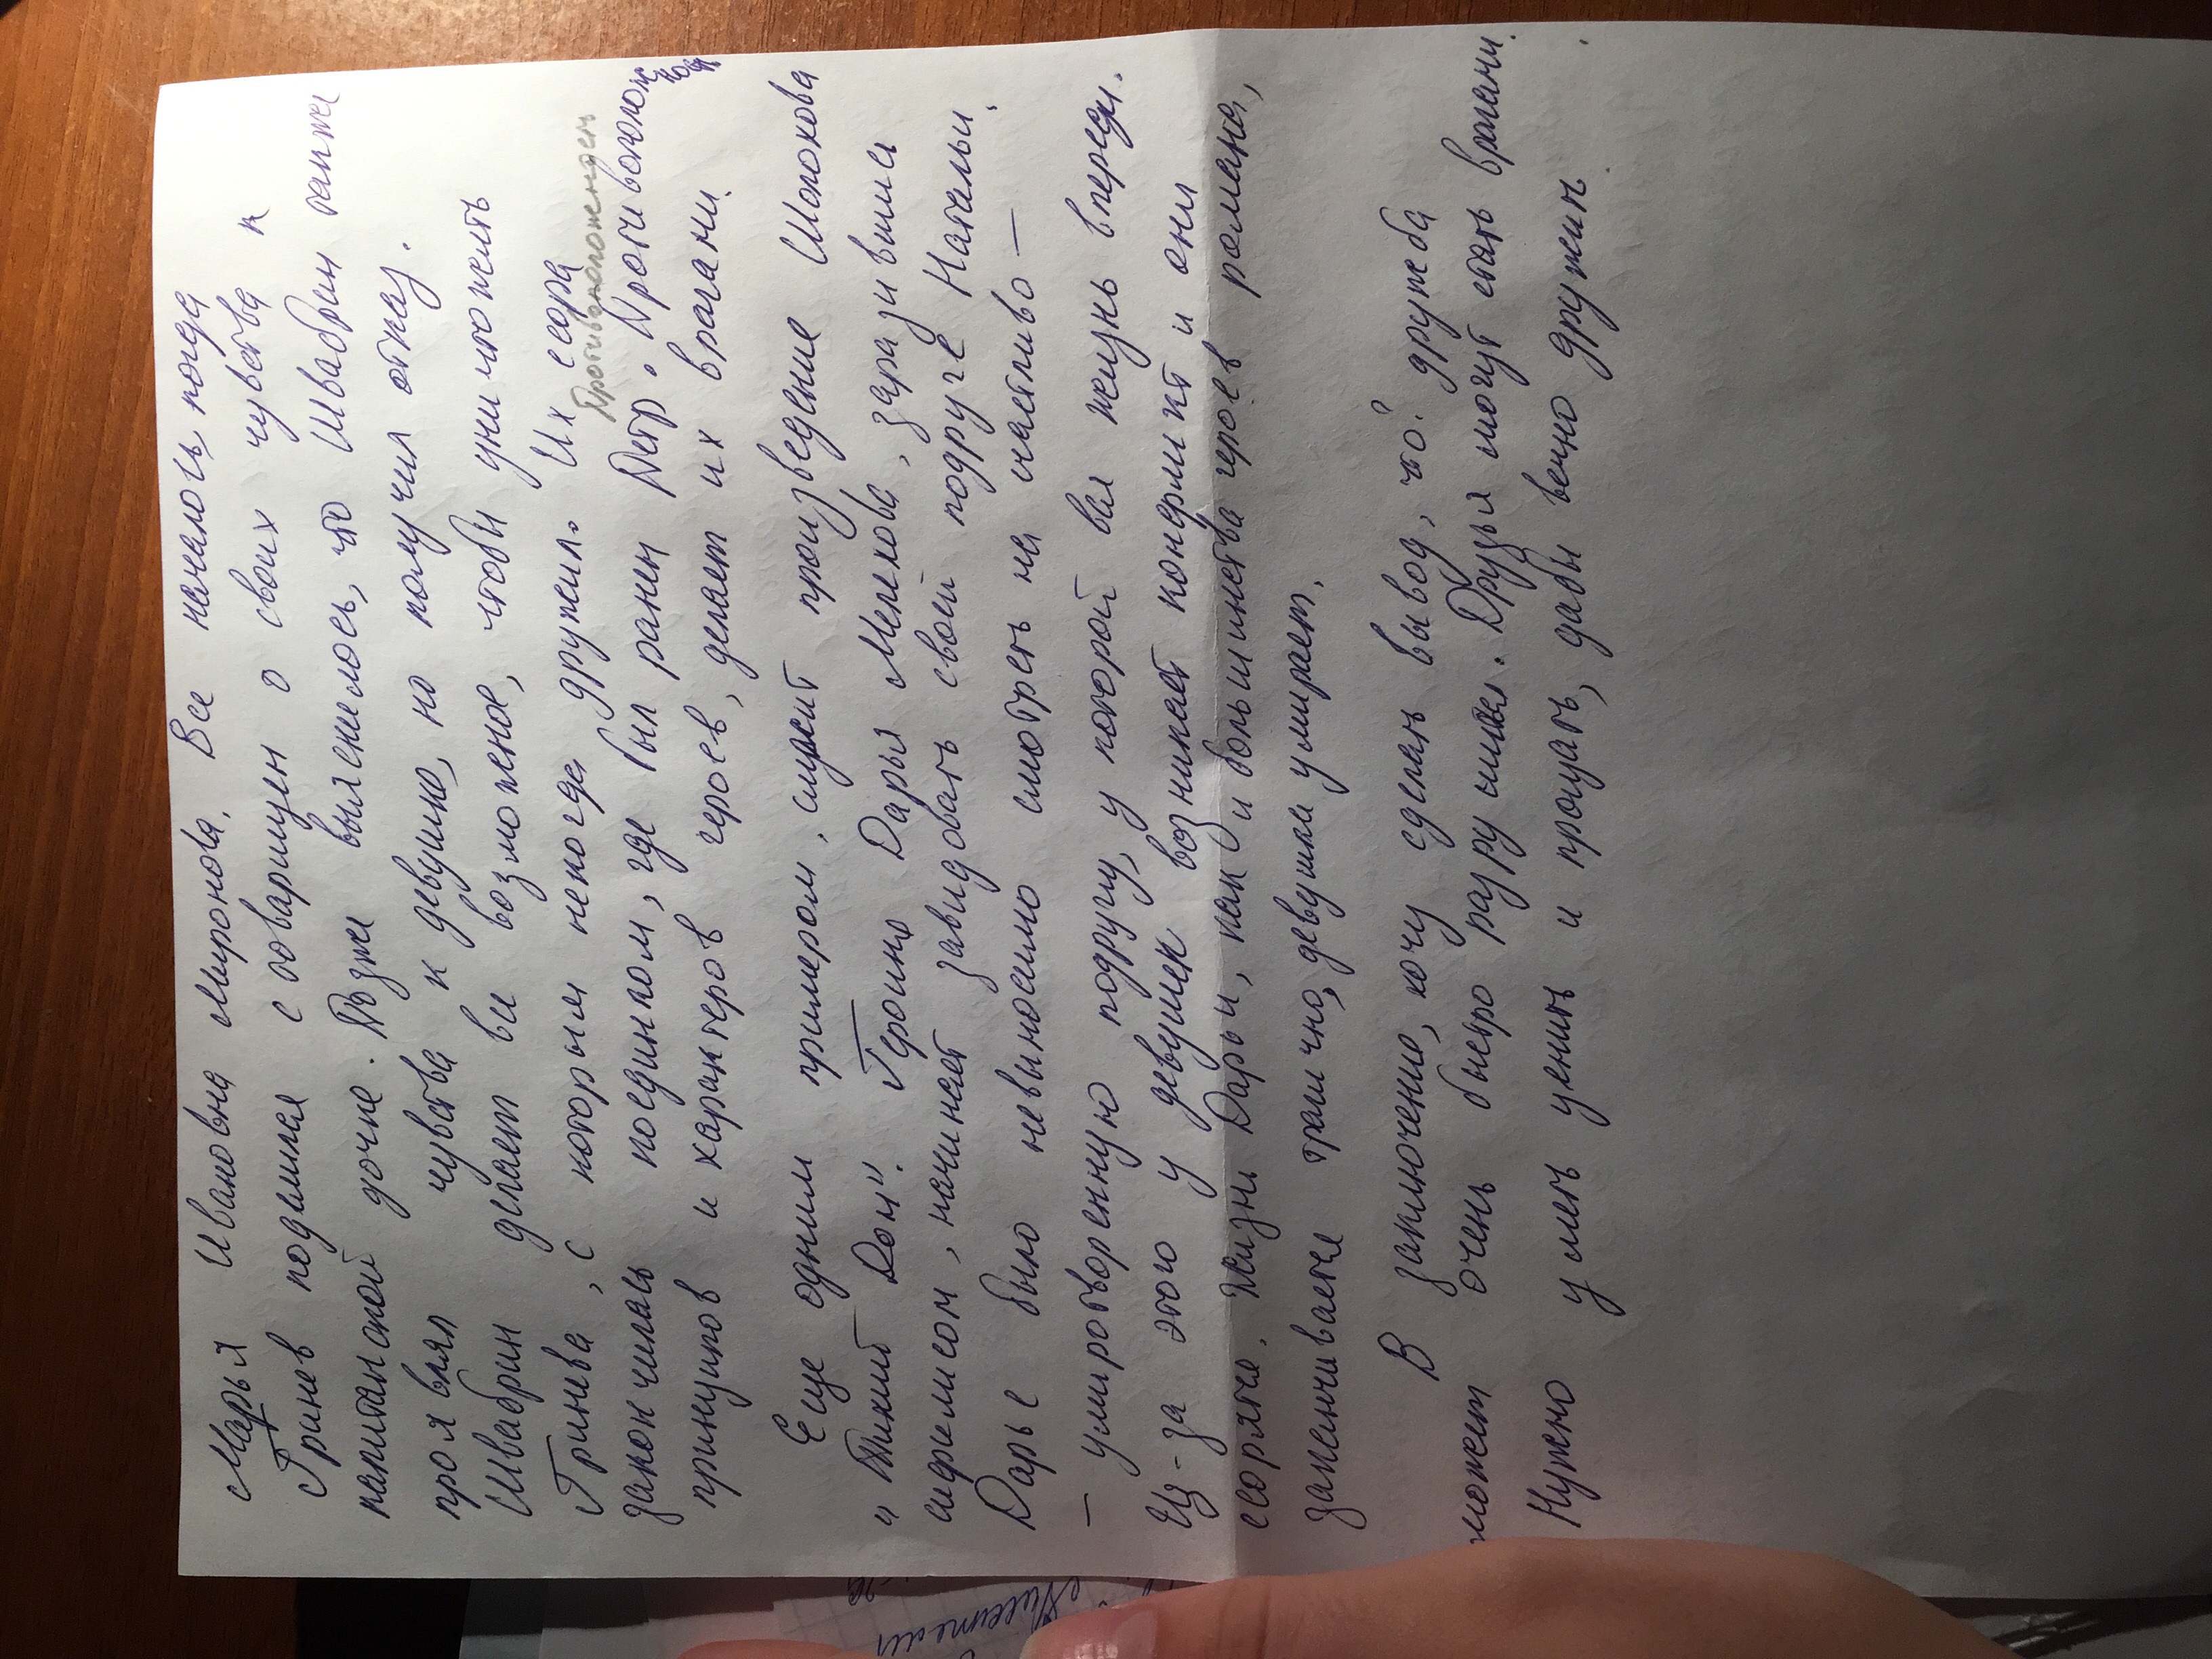 Марья Ивановна Миронова. Все началось, когда
Гринев поделился с товарищем о своих чувства к
капитанской дочке. Позже выяснилось, что Швабрин также
проявлял чувства к девушке, но получил отказ.
Швабрин делает все возможное, чтобы уничтожить
Гринева, с которым некогда дружил. Их ссора
Противоположность
закончилась поединком, где был ранен Петр. Противоположность
принципов и характеров героев, делает их врагами.
Еще одним примером, служит произведение Шолохова
"Тихий Дон". Героиня Дарья Мелехова, заразившись
сифилисом, начинает завидовать своей подруге Натальи.
Дарье было невыносимо смотреть на счастливо —
— умиротворенную подругу, у которой вся жизнь впереди.
Из-за этого у девушек возникает конфликт и они
ссорятся. Жизнь Дарьи, как и большинства героев романа,
заканчивается трагично, девушка умирает.
В заключение, хочу сделать вывод, что? дружба
может очень быстро разрушится. Друзья могут стать врагами.
Нужно уметь ценить и прощать, дабы вечно дружить.